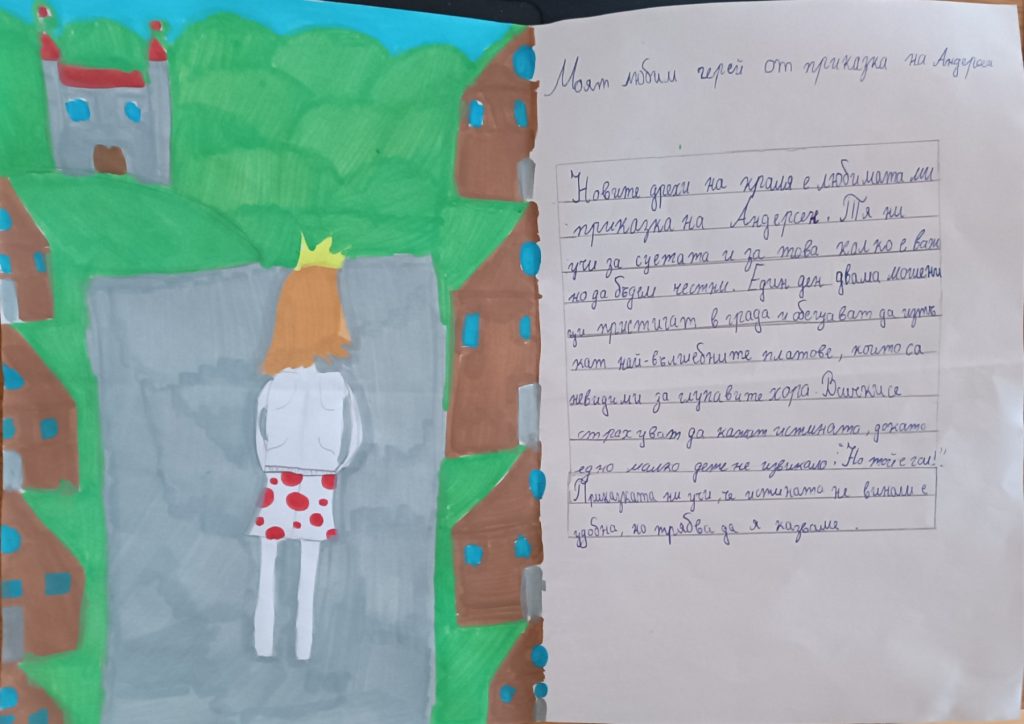 Моят любим герей от приказка на Андерсен
Новите дрехи на краля е любимата ми
приказка на Андерсен. Тя ни
учи за суетата и за това колко е важ
но да бъдем честни. Един ден двама мошени
ци пристигат в града и обещават да изтъ
кат най-вълшебните платове, които са
невидими за глупавите хора. Всички се
страхуват да кажат истината, докато
едно малко дете не извикало: "Но той е гол!".
Приказката ни учи, че истината не винаги е
удобна, но трябва да я казваме.